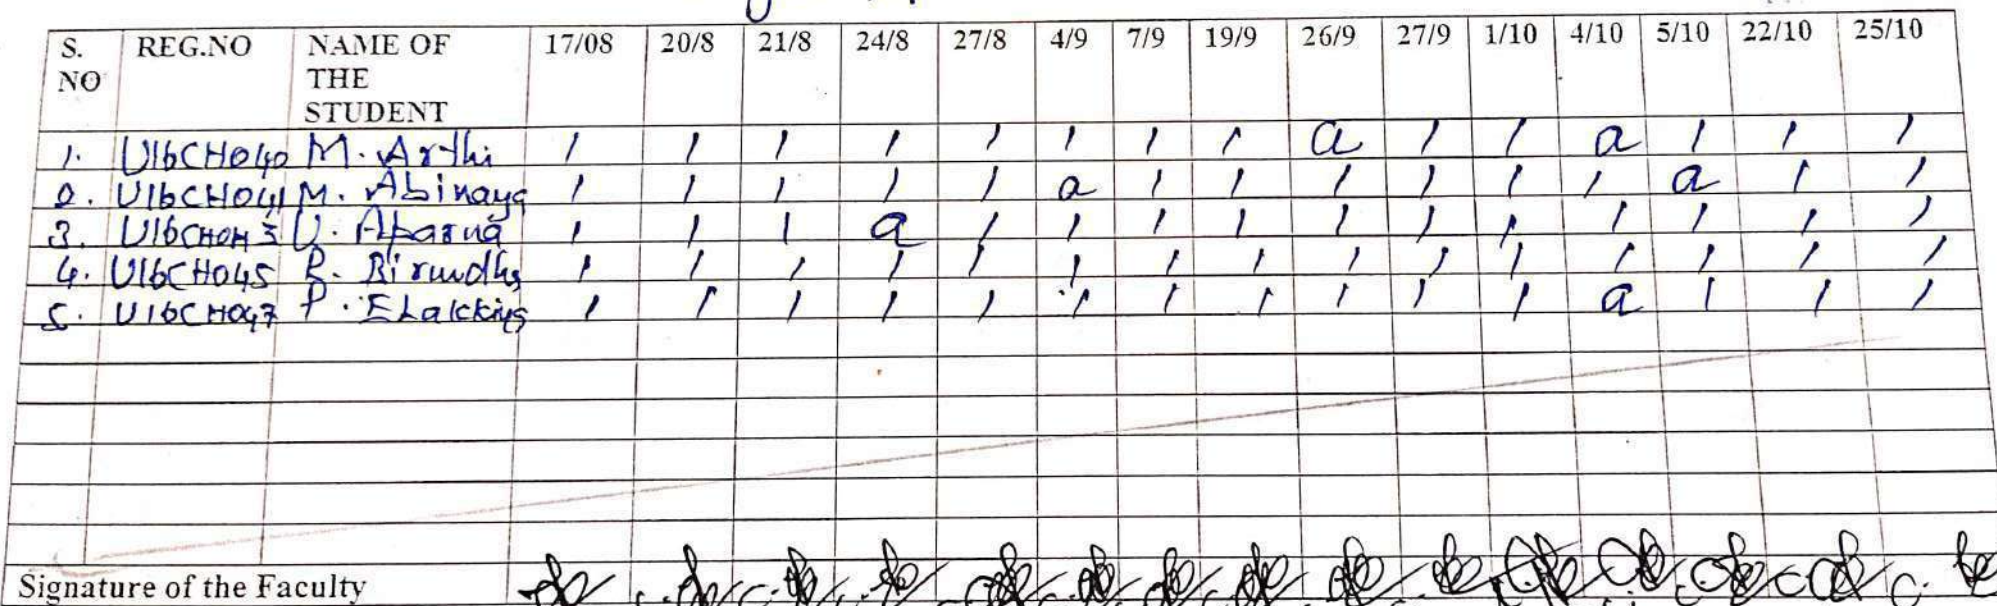 S. NO REG.NO NAME OF THE STUDENT 17/08 20/8 21/8 24/8 27/8 4/9 7/9 19/9 26/9 27/9 1/10 4/10 5/10 22/10 25/10
1. U16CH040 M. Arthi / / / / / / / / a / / a / / /
2. U16CH041 M. Abinaya / / / / / a / / / / / / a / /
3. U16CH043 U. Aparna / / / a / / / / / / / / / / /
4. U16CH045 B. Birundha / / / / / / / / / / / / / / /
5. U16CH047 P. Elakkiya / / / / / / / / / / / a / / /
Signature of the Faculty